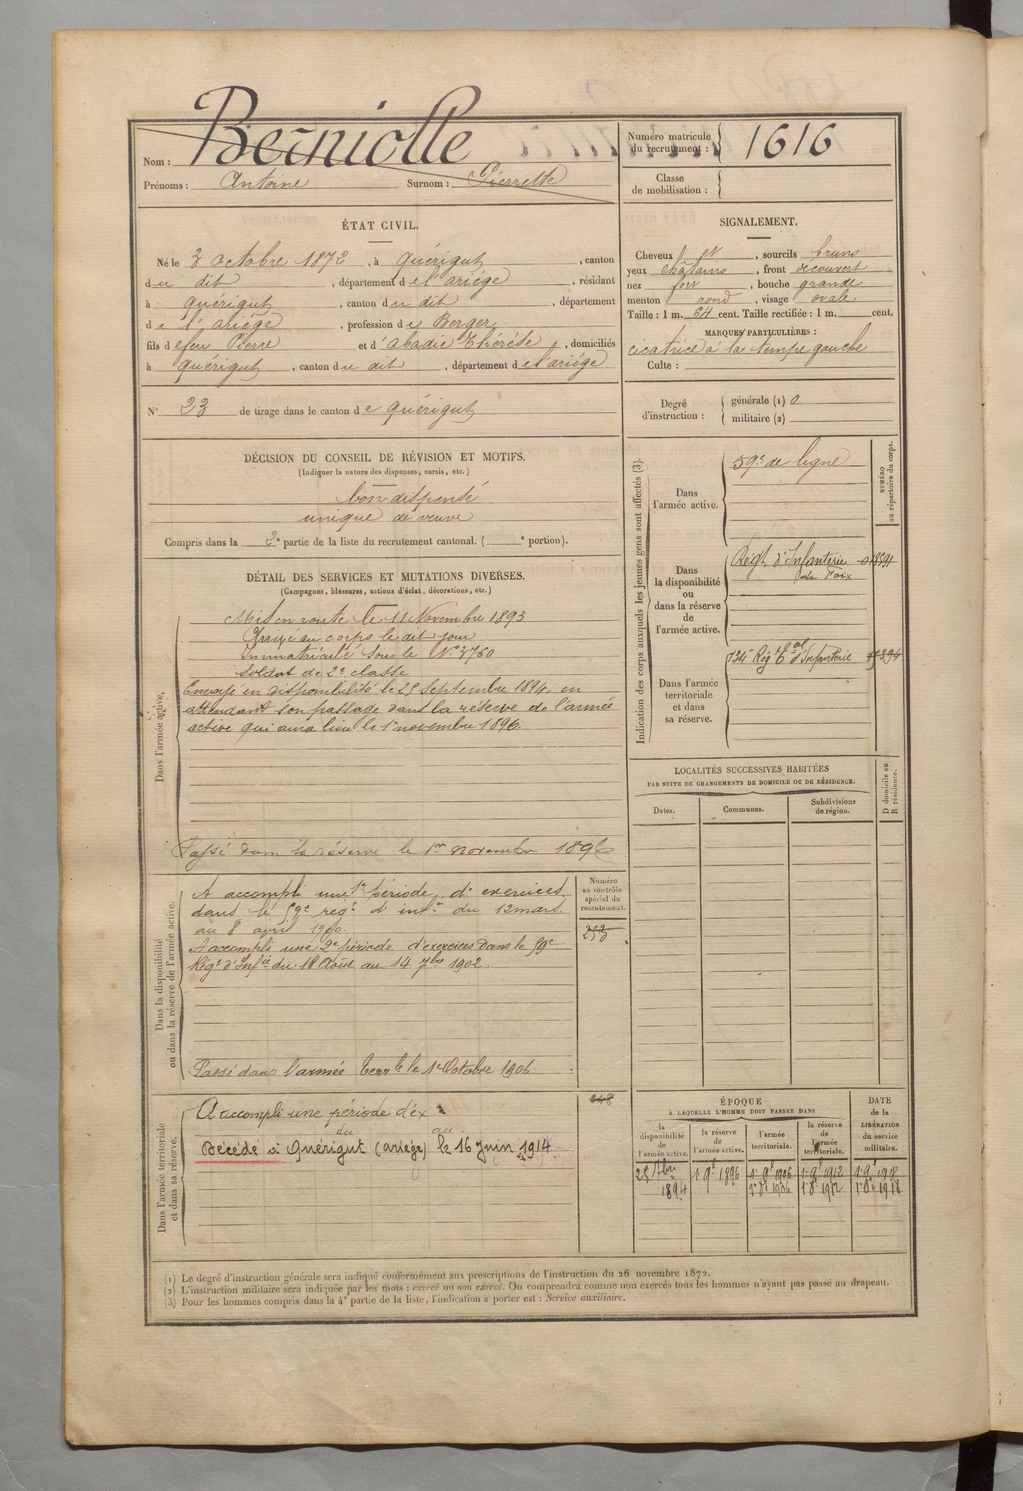 Nom : Berniolle
Prénoms : Antoine Surnom : Pierrette
Numéro matricule du recrutement : 1616
Classe de mobilisation :
ÉTAT CIVIL.
Né le 3 octobre 1872, à Quérigut, canton
du dit, département de l'ariége, résidant
à Quérigut, canton du dit, département
de l'ariége, profession de Berger,
fils de feu Pierre et d'abadie Thérèse, domiciliés
à Quérigut, canton du dit, département de l'ariége
N° 23 de tirage dans le canton de Quérigut
SIGNALEMENT.
Cheveux et, sourcils bruns
yeux châtains, front découvert
nez fort, bouche grande
menton rond, visage ovale
Taille : 1 m. 64 cent. Taille rectifiée : 1 m. cent.
MARQUES PARTICULIÈRES :
cicatrice à la tempe gauche
Culte :
Degré d'instruction : générale (1) 0
militaire (2)
DÉCISION DU CONSEIL DE RÉVISION ET MOTIFS.
(Indiquer la nature des dispenses, sursis, etc.)
bon dispensé
unique de veuve
Compris dans la 2e partie de la liste du recrutement cantonal. ( e portion).
DÉTAIL DES SERVICES ET MUTATIONS DIVERSES.
(Campagnes, blessures, actions d'éclat, décorations, etc.)
Dans l'armée active.
Mis en route le 11 Novembre 1893
Arrivé au corps le dit jour
Immatriculé sous le N° 3760
soldat de 2e classe
Envoyé en disponibilité le 25 Septembre 1894, en
attendant son passage dans la réserve de l'armée
active qui aura lieu le 1er novembre 1896.
Passé dans la réserve le 1er novembre 1896
Indication des corps auxquels les jeunes gens sont affectés (3).
NUMÉRO au répertoire du corps.
Dans l'armée active.
59e de ligne
Dans la disponibilité ou dans la réserve de l'armée active.
Régt d'Infanterie
de Foix
Dans l'armée territoriale et dans sa réserve.
134e Régt Tal d'Infanterie
LOCALITÉS SUCCESSIVES HABITÉES
PAR SUITE DE CHANGEMENTS DE DOMICILE OU DE RÉSIDENCE.
Dates. Communes. Subdivisions de région. D domicile ou R résidence.
Dans la disponibilité ou dans la réserve de l'armée active.
A accompli une 1e période d'exercices
dans le 59e régt d'infie du 12 mars
au 8 avril 1900.
A accompli une 2e période d'exercices dans le 59e
Régt d'Infie du 18 Août au 14 7bre 1902.
Passé dans l'armée terrle le 1er Octobre 1906
Numéro au contrôle spécial du recrutement.
248
Dans l'armée territoriale et dans sa réserve.
A accompli une période d'ex
du au
Décédé à Quérigut (ariége) le 16 juin 1914
ÉPOQUE
À LAQUELLE L'HOMME DOIT PASSER DANS
la disponibilité de l'armée active. la réserve de l'armée active. l'armée territoriale. la réserve de l'armée territoriale.
DATE de la LIBÉRATION du service militaire.
25 7bre 1894 1er 9e 1896 1er 9e 1906 1er 9e 1912 1er 9e 1918
1er 8e 1906 1er 8e 1912 1er 8e 1918
(1) Le degré d'instruction générale sera indiqué conformément aux prescriptions de l'instruction du 26 novembre 1872.
(2) L'instruction militaire sera indiquée par les mots : exercé ou non exercé. On comprendra comme non exercés tous les hommes n'ayant pas passé au drapeau.
(3) Pour les hommes compris dans la 4e partie de la liste, l'indication à porter est : Service auxiliaire.